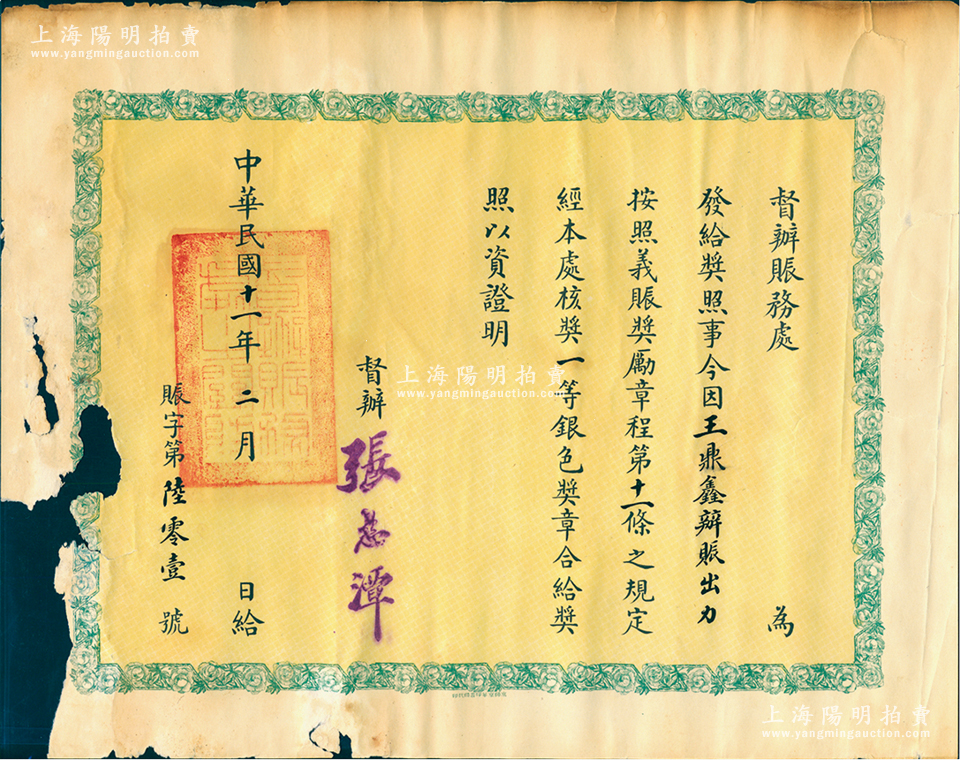 上海陽明拍賣
www.yangmingauction.com
督辦賑務處 為
發給奬照事今因王鼎鑫辦賑出力
按照義賑奬勵章程第十一條之規定
經本處核奬一等銀色奬章合給奬
照以資證明
督辦 張志潭
中華民國十一年二月 日給
賑字第陸零壹號
上海陽明拍賣
www.yangmingauction.com
上海陽明拍賣
www.yangmingauction.com